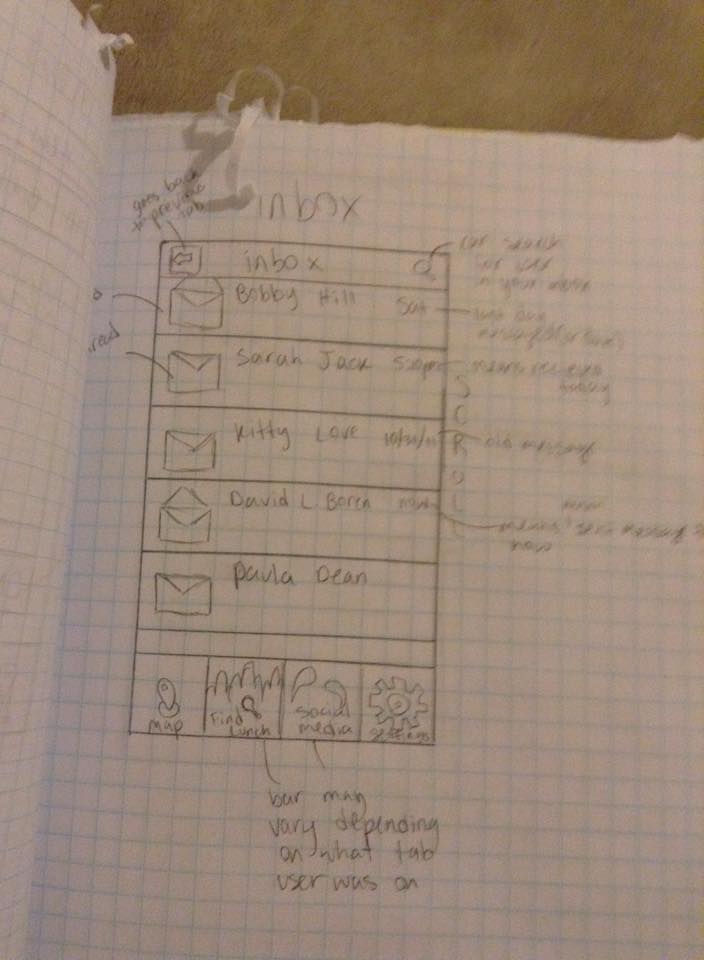 inbox
goes back
to previous
tab
inbox
can search
for user
in your inbox
Bobby Hill
Sat
last day
read
Sarah Jack
520pm
means received
today
Kitty Love
old message
David L Boren
now
means sent message
now
SCROLL
paula Dean
map
Find
Lunch
social
media
settings
bar may
vary depending
on what tab
user was on